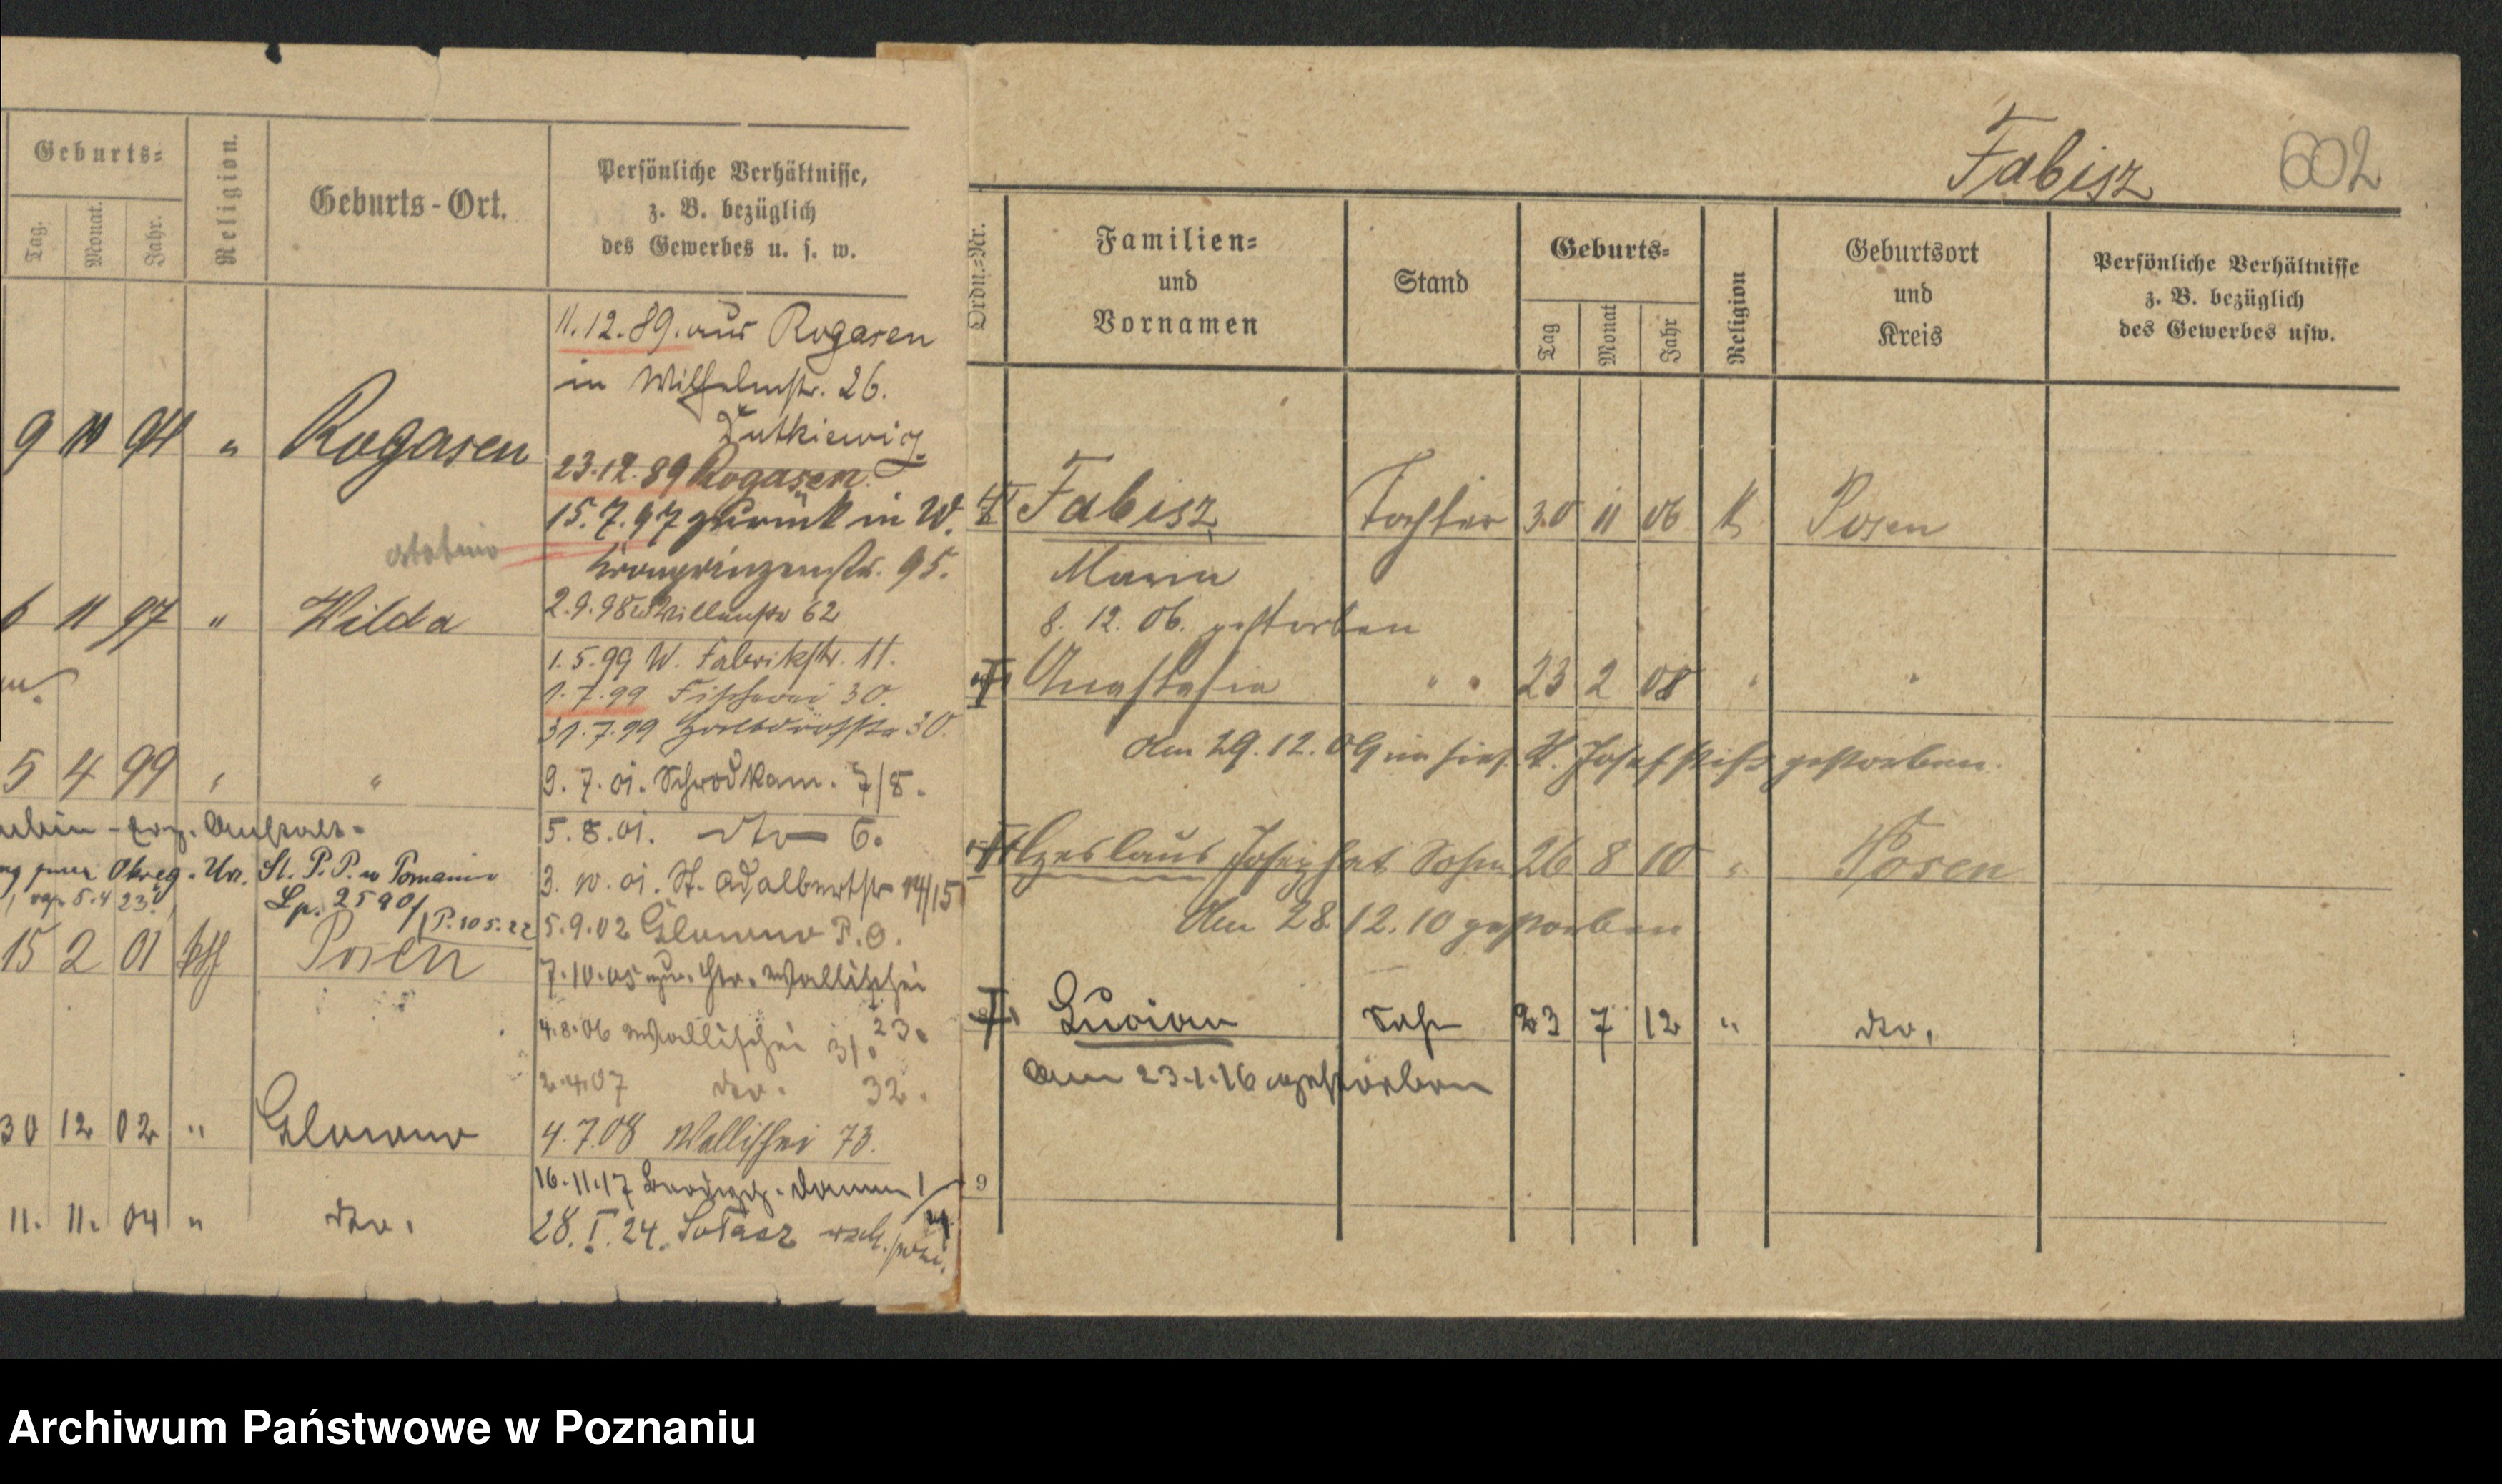 Geburts-
Tag.
Monat.
Jahr.
Religion.
Geburts-Ort.
Persönliche Verhältnisse,
z. B. bezüglich
des Gewerbes u. s. w.
11.12.89. aus Rogasen
in Wilhelmstr. 26.
Dutkiewicz.
23.12.89 Rogasen.
9 11 94 " Rogasen
15.7.97 zurück in W.
Kronprinzenstr. 95.
6 11 97 " Wilda
2.9.98 62
1.5.99 W. Fabrikstr. 11.
1.7.99 Fischerei 30.
31.7.99 30.
5 4 99 " "
9.7.01. Schrodkam. 7/8.
5.8.01. dto 6.
Okreg. Urz. St. P. P. w Poznaniu
5.4 23
Lp. 2590/
P. 10 5. 22
3. 10. 01. St. Adalbertstr 14/15
15 2 01 kth Posen
5.9.02 Glowno P.O.
7.10.05 Wallischei
23.
4.8.06 Wallischei 31.
2.4.07 dto. 32.
30 12 02 " Glowno
4.7.08 Wallischei 73.
16.11.17
11. 11. 04 " dto.
28.I.24. Sołacz
Fabisz
602
Ordn.-Nr.
Familien-
und
Vornamen
Stand
Geburts-
Tag
Monat
Jahr
Religion
Geburtsort
und
Kreis
Persönliche Verhältnisse
z. B. bezüglich
des Gewerbes usw.
Fabisz Tochter 30 11 06 K Posen
Maria
8. 12. 06. gestorben
Anastasia " " 23 2 08 " "
Am 29.12.09 im hies. K. Josefstift gestorben.
Czeslaus Josephat Sohn 26 8 10 " Posen
Am 28.12.10 gestorben
Lucian Sohn 23 7 12 " dto.
Am 23.1.16 gestorben
9
Archiwum Państwowe w Poznaniu